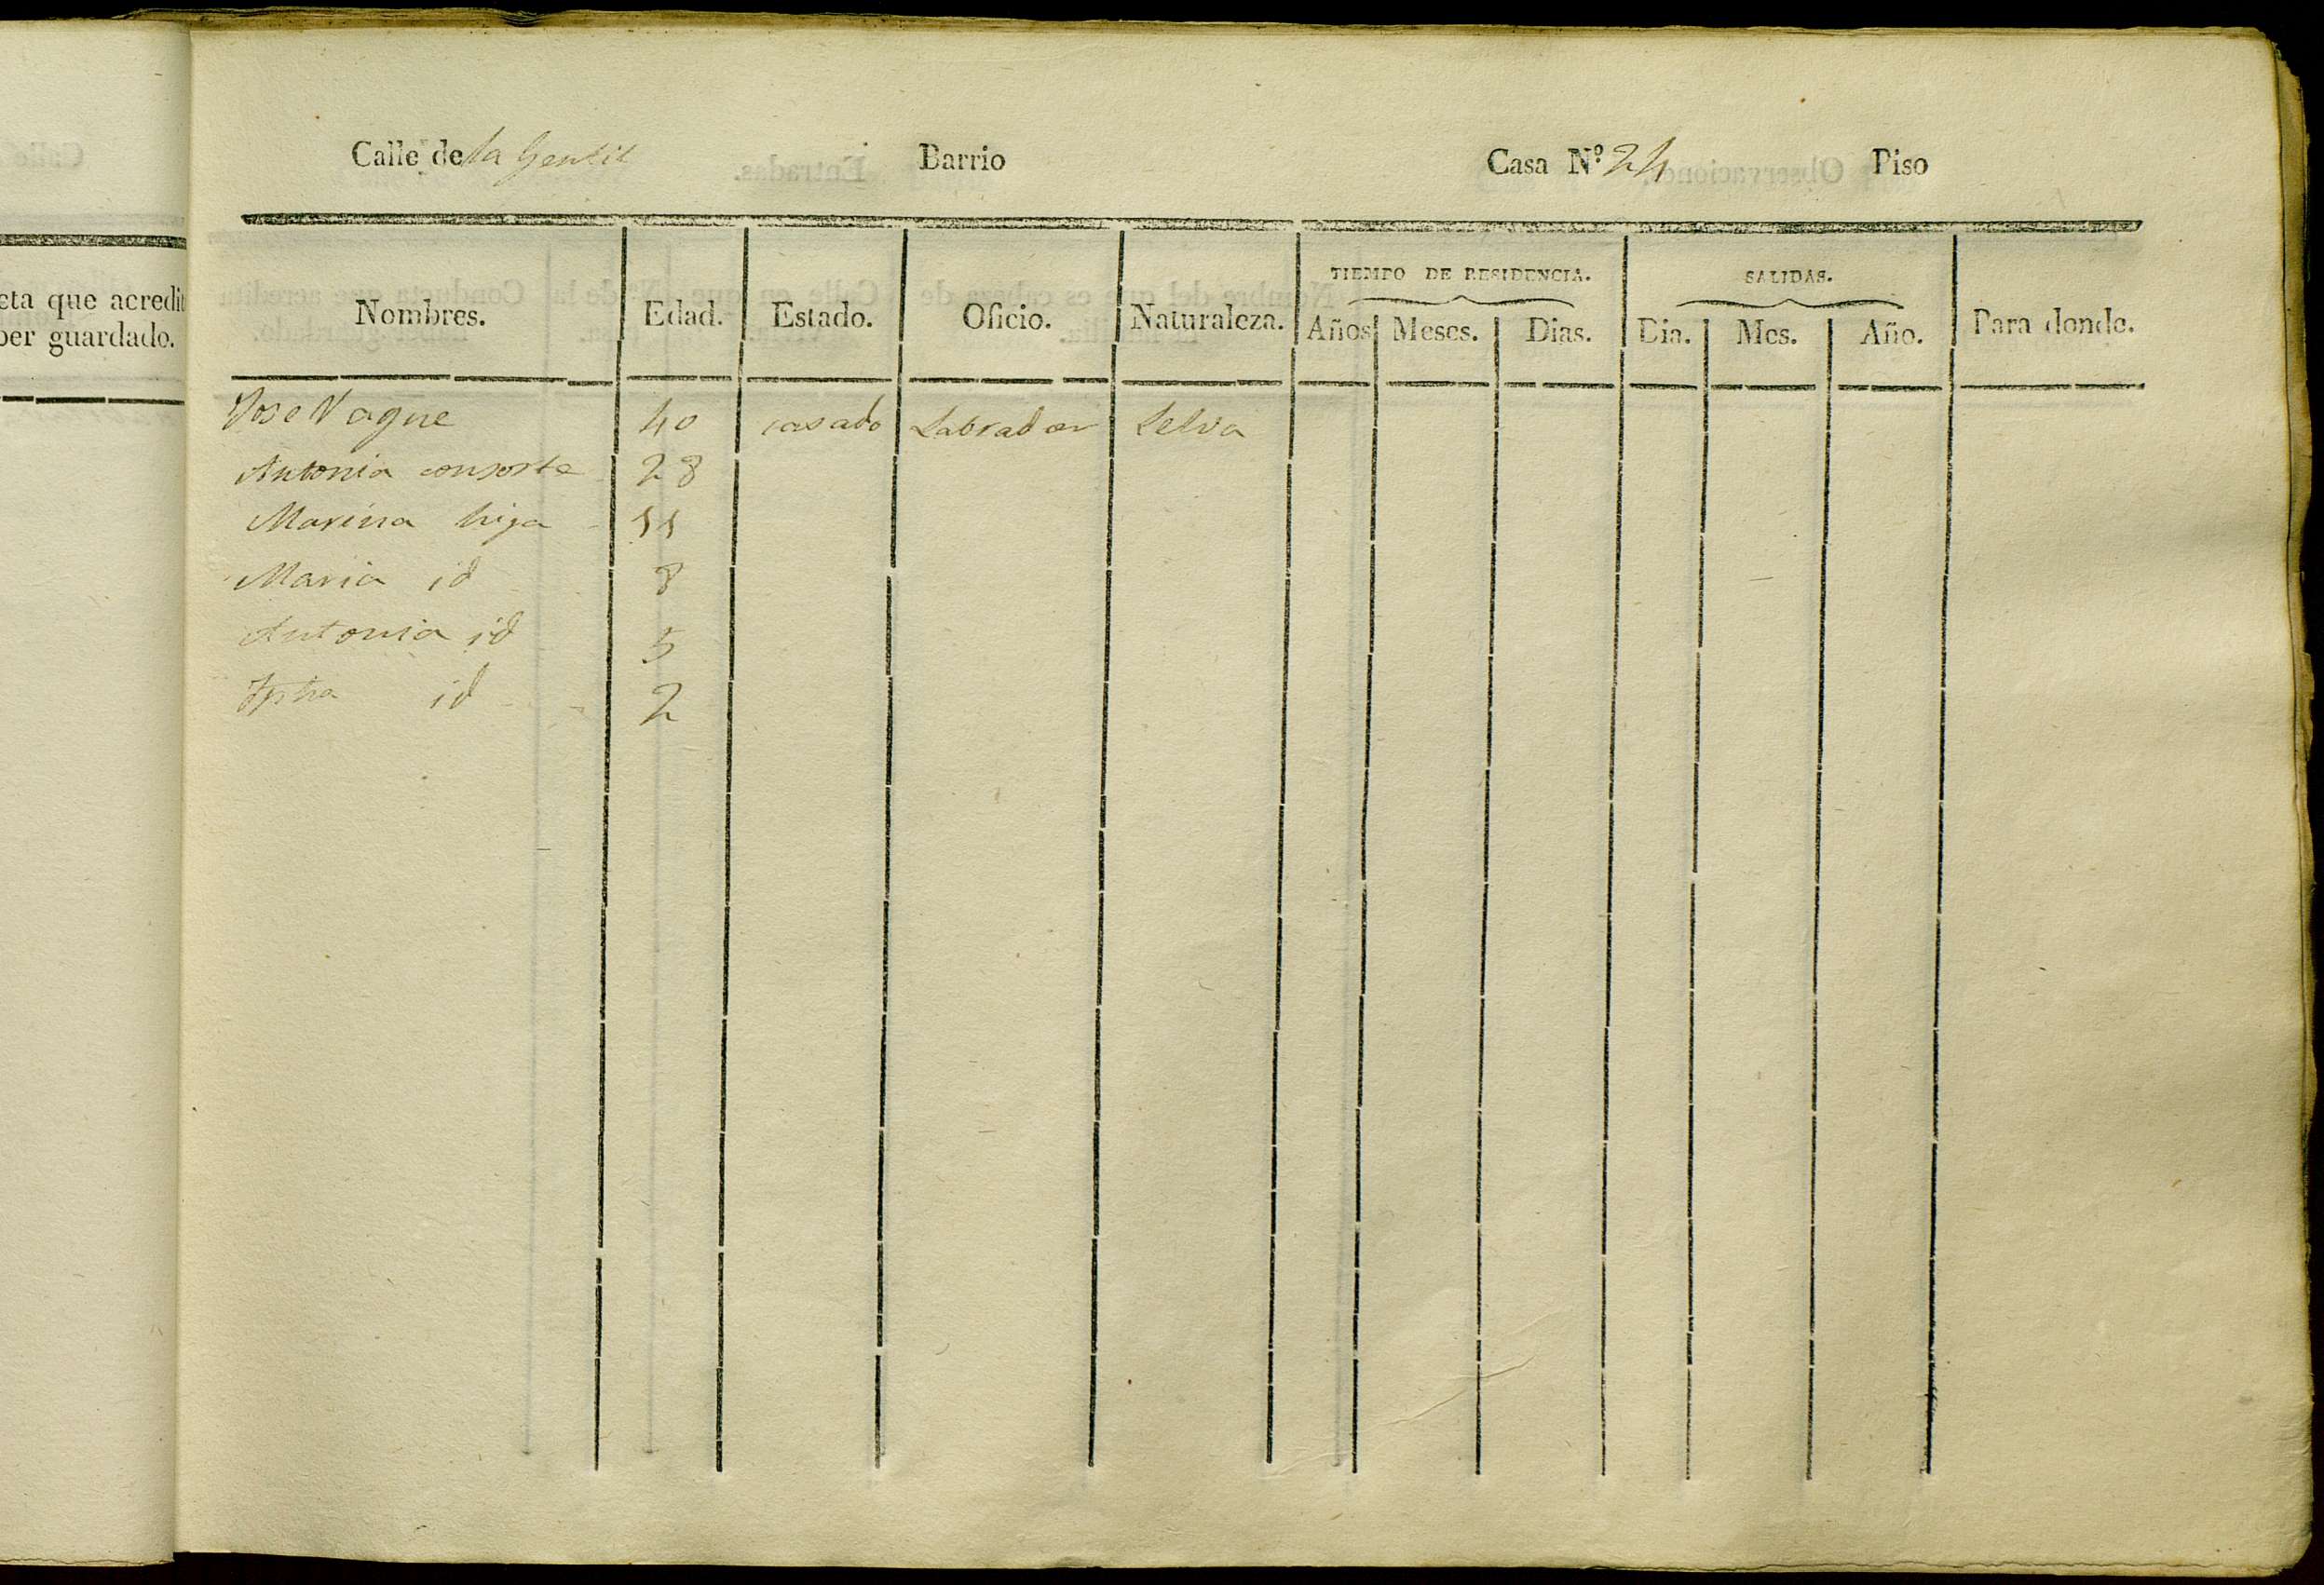 eta que acredit
ber guardado.
Calle de la Gentil Barrio Casa N.º 24 Piso
TIEMPO DE RESIDENCIA. SALIDAS.
Nombres. Edad. Estado. Oficio. Naturaleza. Años Meses. Dias. Dia. Mes. Año. Para donde.
Jose Vague 40 casado Labrador Selva
Antonia consorte 28
Marina higa 11
Maria id 8
Antonia id 5
id 2